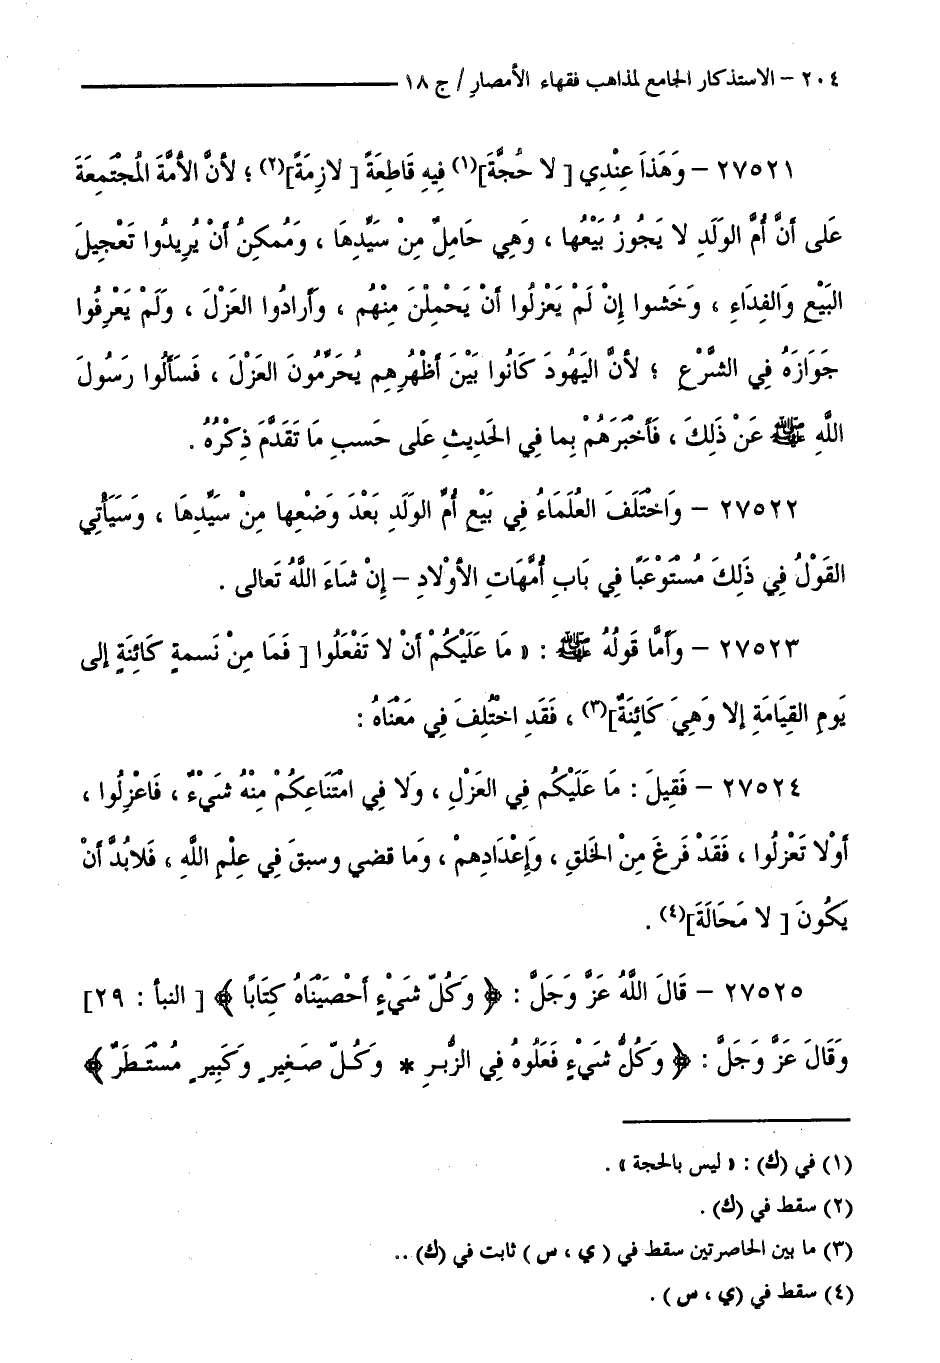 ٢٠٤ – الاستذكار الجامع لمذاهب فقهاء الأمصار / ج ١٨
٢٧٥٢١ – وَهَذَا عِنْدِي [ لا حُجَّةَ](١) فِيهِ قَاطِعَةً [ لازِمَةً](٢) ؛ لأنَّ الأُمَّةَ المُجْتَمِعَةَ
عَلى أَنَّ أُمَّ الوَلَدِ لا يَجُوزُ بَيْعُها ، وَهِي حَامِلٌ مِنْ سَيِّدِها ، وَمُمكِنُ أَنْ يُرِيدُوا تَعْجِيلَ
البَيْعِ وَالفِدَاءِ ، وَخَشوا إِنْ لَمْ يَعْزلُوا أَنْ يَحْمِلْنَ مِنْهُم ، وَأَرادُوا العَزْلَ ، وَلَمْ يَعْرِفُوا
جَوَازَهُ فِي الشَّرْعِ ؛ لأنَّ اليَهُودَ كَانُوا بَيْنَ أَظْهُرِهِم يُحَرِّمُونَ العَزْلَ ، فَسَأَلُوا رَسُولَ
اللَّهِ ﷺ عَنْ ذَلِكَ ، فَأَخْبَرَهُمْ بِما فِي الحَدِيثِ عَلى حَسبِ مَا تَقَدَّمَ ذِكْرُهُ .
٢٧٥٢٢ – وَاخْتَلَفَ العُلَمَاءُ فِي بَيْعِ أُمِّ الوَلَدِ بَعْدَ وَضْعِها مِنْ سَيِّدِهَا ، وَسَيَأْتِي
القَوْلُ فِي ذَلِكَ مُسْتَوْعَبًا فِي بَابِ أُمَّهَاتِ الأوْلادِ – إِنْ شَاءَ اللَّهُ تَعالى .
٢٧٥٢٣ – وَأَمَّا قَولُهُ ﷺ : « مَا عَلَيْكُمْ أَنْ لا تَفْعَلُوا [ فَمَا مِنْ نَسمةٍ كَائِنَةٍ إلى
يَومِ القِيَامَةِ إلا وَهِيَ كَائِنَةٌ](٣) ، فَقَدِ اخْتُلِفَ فِي مَعْنَاهُ :
٢٧٥٢٤ – فَقِيلَ : مَا عَلَيْكُم فِي العَزْلِ ، وَلا فِي امْتَنَاعِكُمْ مِنْهُ شَيْءٌ ، فَاعْزِلُوا ،
أَوْلا تَعْزلُوا ، فَقَدْ فَرِغَ مِنْ الخَلقِ ، وَإِعْدَادِهمْ ، وَمَا قضي وسبقَ فِي عِلْمِ اللَّهِ ، فَلابُدَّ أَنْ
يَكُونَ [ لا مَحَالَةَ](٤) .
٢٧٥٢٥ – قَالَ اللَّهُ عَزَّ وَجَلَّ : ﴿ وَكُلّ شَيْءٍ أَحْصَيْنَاهُ كِتَابًا ﴾ [ النبأ : ٢٩]
وَقَالَ عَزَّ وَجَلَّ : ﴿ وَكُلُّ شَيْءٍ فَعَلُوهُ فِي الزُّبرِ * وَكُلّ صَغِيرٍ وَكَبِيرٍ مُسْتَطَرٌ ﴾
(١) في (ك) : « ليس بالحجة » .
(٢) سقط في (ك) .
(٣) ما بين الحاصرتين سقط في ( ي ، س ) ثابت في (ك) ..
(٤) سقط في (ي ، س ) .